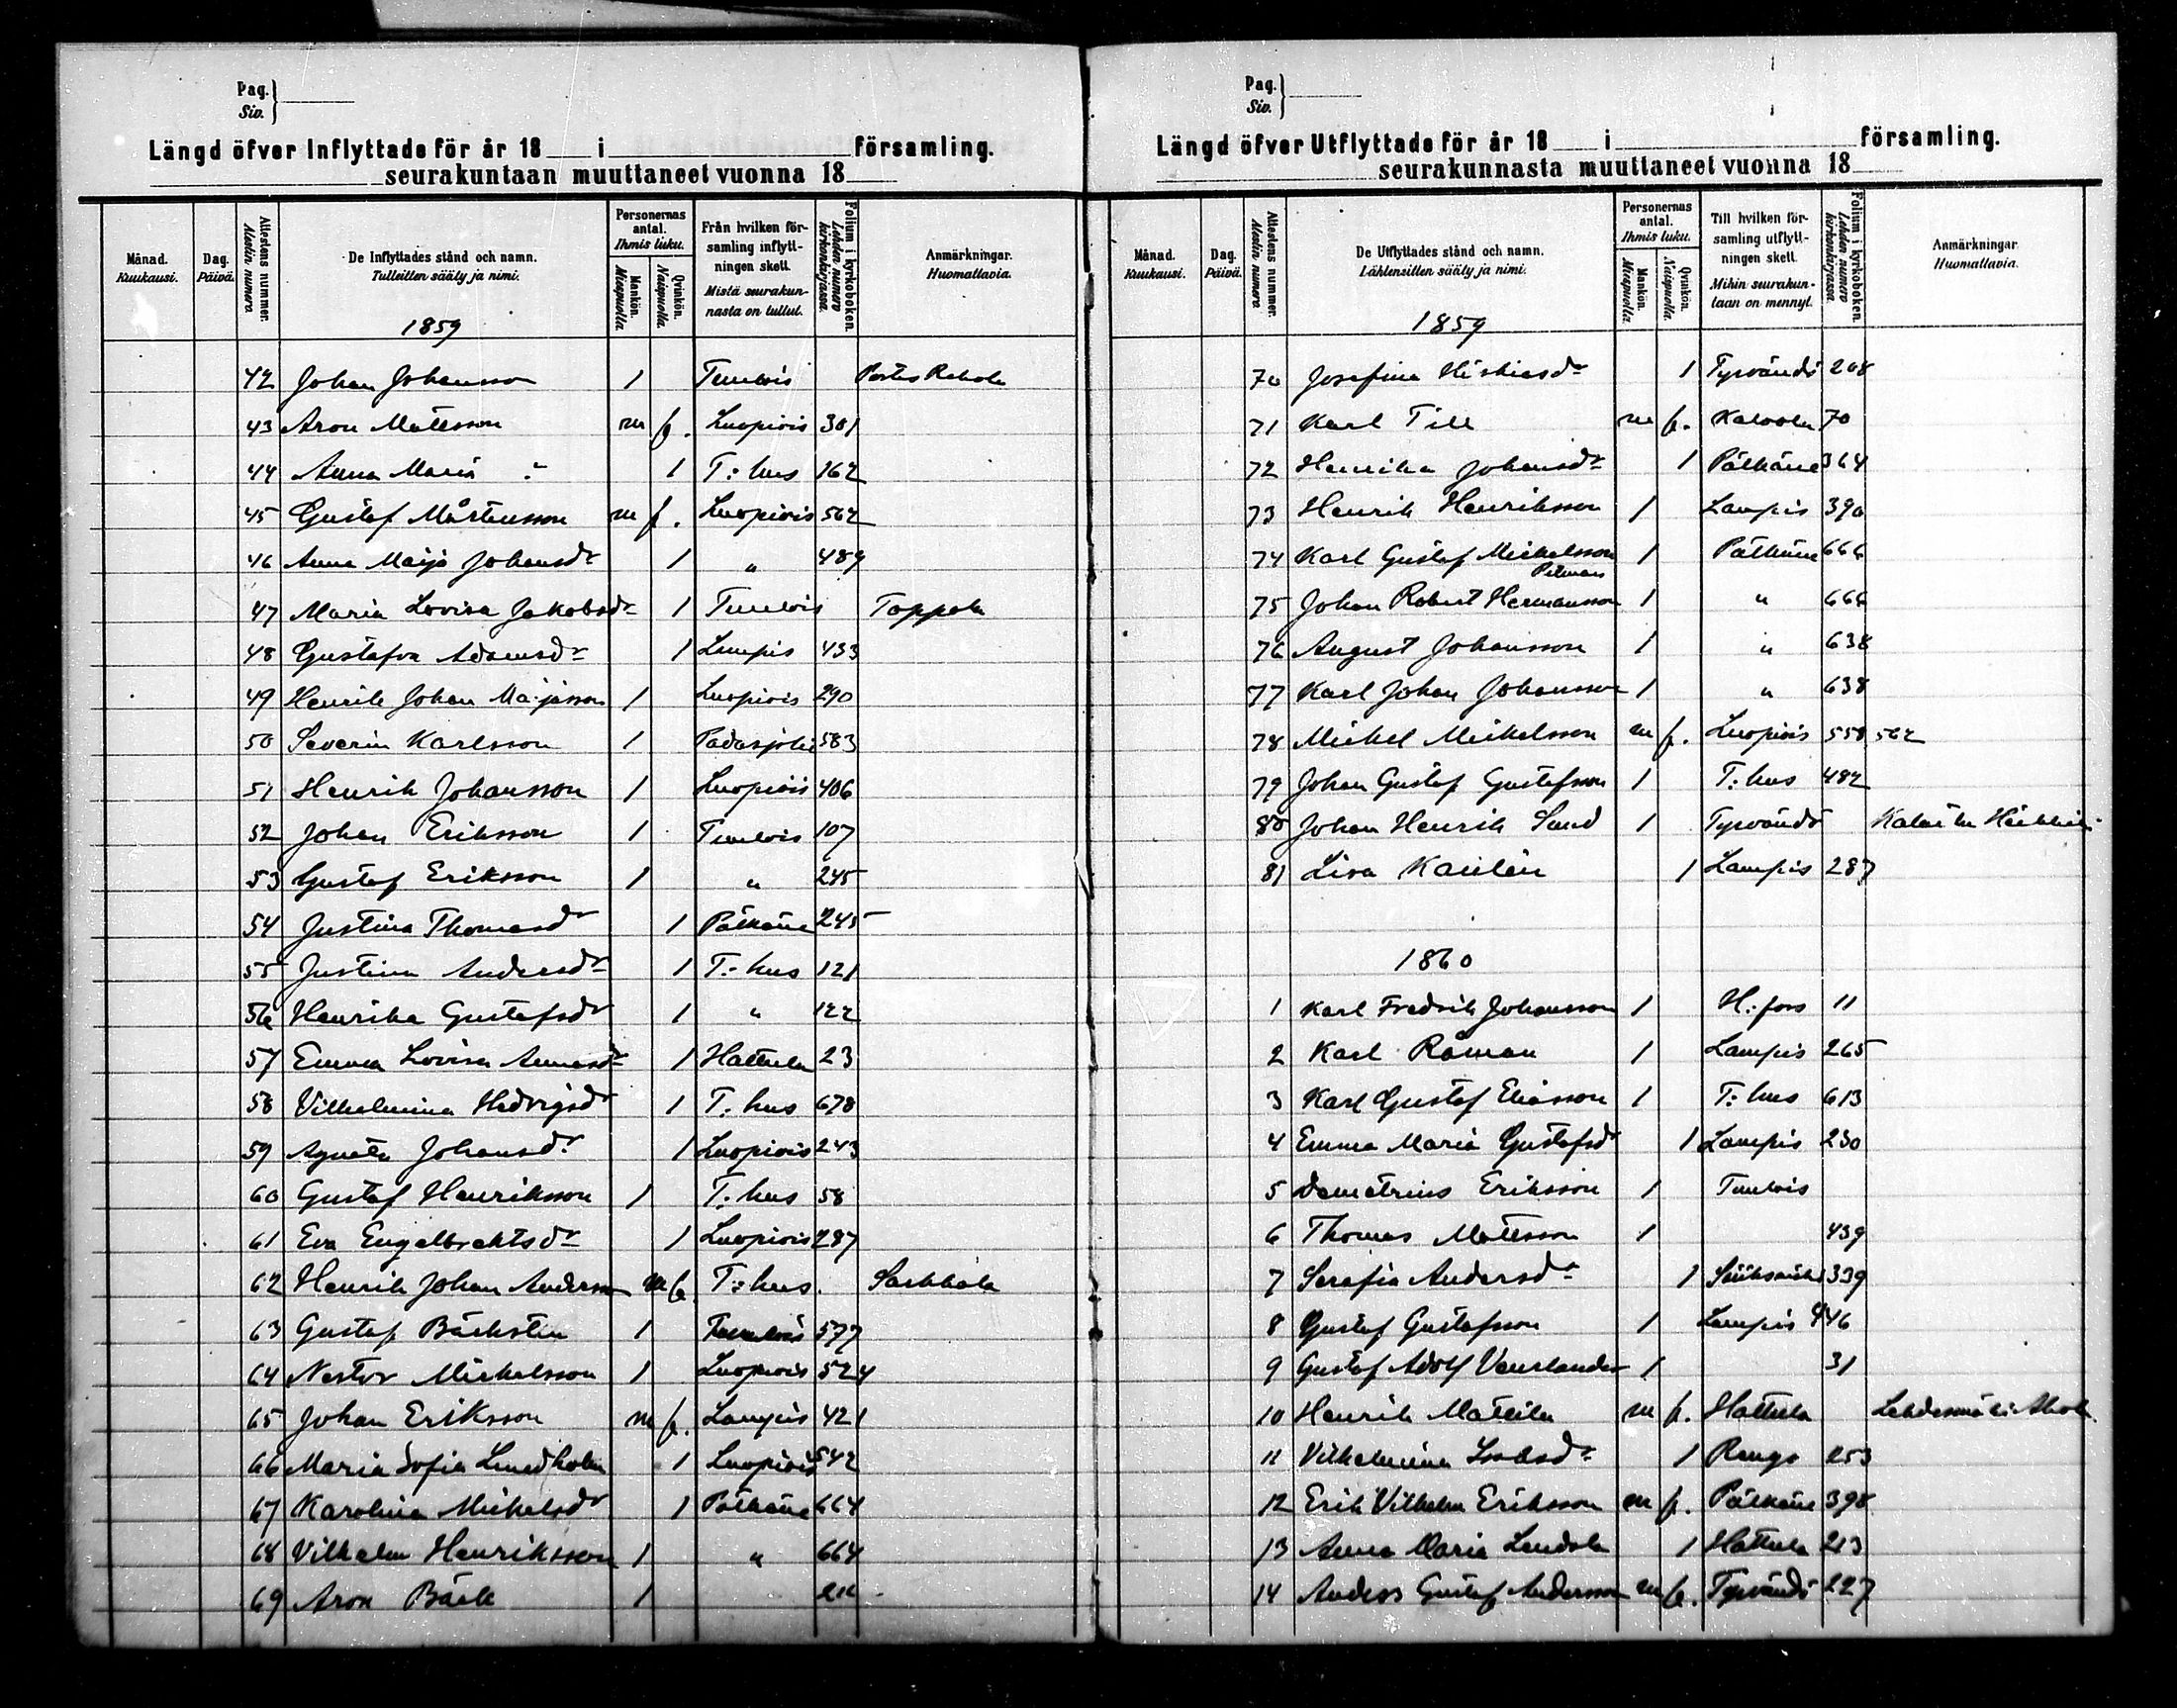 Pag.
Siv.
Längd öfver Inflyttade för år 18 i församling.
seurakuntaan muuttaneet vuonna 18
Månad. Kuukausi.
Dag. Päivä.
Attestens nummer. Atestin numero
De Inflyttades stånd och namn.
Tulleitten sääty ja nimi.
1859
Personernas antal.
Ihmis luku.
Mankön. Miespuolia
Qvinkön. Naispuolia
Från hvilken församling inflyttningen skett.
Mistä seurakunnasta on tullut.
Folium i kyrkoboken. Lehden numero kirkonkirjassa.
Anmärkningar.
Huomattavia.
42 Johan Johansson 1 Tuulois
43 Aron Mattsson m f. Luopiois 301
44 Anna Maria " 1 T:hus 162
45 Gustaf Mårtensson m f. Luopiois 562
46 Anna Maija Johansdr 1 " 489
47 Maria Lovisa Jakobsdr 1 Tuulois Toppola
48 Gustafva Adamsdr 1 Lampis 433
49 Henrik Johan Maijasson 1 Luopiois 290
50 Severin Karlsson 1 Padasjoki 583
51 Henrik Johansson 1 Luopiois 406
52 Johan Eriksson 1 Tuulois 107
53 Gustaf Eriksson 1 " 245
54 Justina Thomasdr 1 Pälkäne 245
55 Justina Andersdr 1 T:hus 121
56 Henrika Gustafsdr 1 " 122
57 Emma Lovisa Annasdr 1 Hattula 23
58 Vilhelmina Hedvigsdr 1 T:hus 678
59 Agnata Johansdr 1 Luopiois 243
60 Gustaf Henriksson 1 T:hus 58
61 Eva Engelbrektsdr 1 Luopiois 287
62 Henrik Johan Andersson m f. T:hus.
63 Gustaf Bäcksten 1 Tuulois 577
64 Nestor Michelsson 1 Luopiois 524
65 Johan Eriksson m f. Lampis 421
66 Maria Sofia Lundholm 1 Luopiois 542
67 Karolina Mickelsdr 1 Pälkäne 664
68 Vilhelm Henriksson 1 " 664
69 Aron Bäck 1
Pag.
Siv.
Längd öfver Utflyttade för år 18 i församling.
seurakunnasta muuttaneet vuonna 18
Månad. Kuukausi.
Dag. Päivä.
Attestens nummer. Atestin numero
De Utflyttades stånd och namn.
Lähteneitten sääty ja nimi.
1859
Personernas antal.
Ihmis luku.
Mankön. Miespuolia
Qvinkön. Naispuolia
Till hvilken församling utflyttningen skett.
Mihin seurakuntaan on mennyt.
Folium i kyrkoboken. Lehden numero kirkonkirjassa.
Anmärkningar.
Huomattavia.
70 Josefina Hiskiasdr 1 Tyrvändö 208
71 Karl Till m f. Kalvola 70
72 Henrika Johansdr 1 Pälkäne 364
73 Henrik Henriksson 1 Lampis 390
74 Karl Gustaf Mickelsson 1 Pälkäne 666
75 Johan Robert Hermansson 1 " 666
76 August Johansson 1 " 638
77 Karl Johan Johansson 1 " 638
78 Mickel Mickelsson m f. Luopiois 558 562
79 Johan Gustaf Gustafsson 1 T:hus 482
80 Johan Henrik Sand 1 Tyrvändö
81 Lisa Kaulén 1 Lampis 287
1860
1 Karl Fredrik Johansson 1 H:fors 11
2 Karl Råman 1 Lampis 265
3 Karl Gustaf Eliasson 1 T:hus 613
4 Emma Maria Gustafsdr 1 Lampis 230
5 Demetrius Eriksson 1 Tuulois
6 Thomas Mattsson 1 439
7 Serafia Andersdr 1 339
8 Gustaf Gustafsson 1 Lampis 446
9 Gustaf Adolf 1 31
10 Henrik Mattila m f. Hattula
11 Vilhelmina 1 Rengo 253
12 Erik Vilhelm Eriksson m f. Pälkäne 398
13 Anna Maria 1 Hattula 213
14 Anders Gustaf Andersson m f. Tyrvändö 227